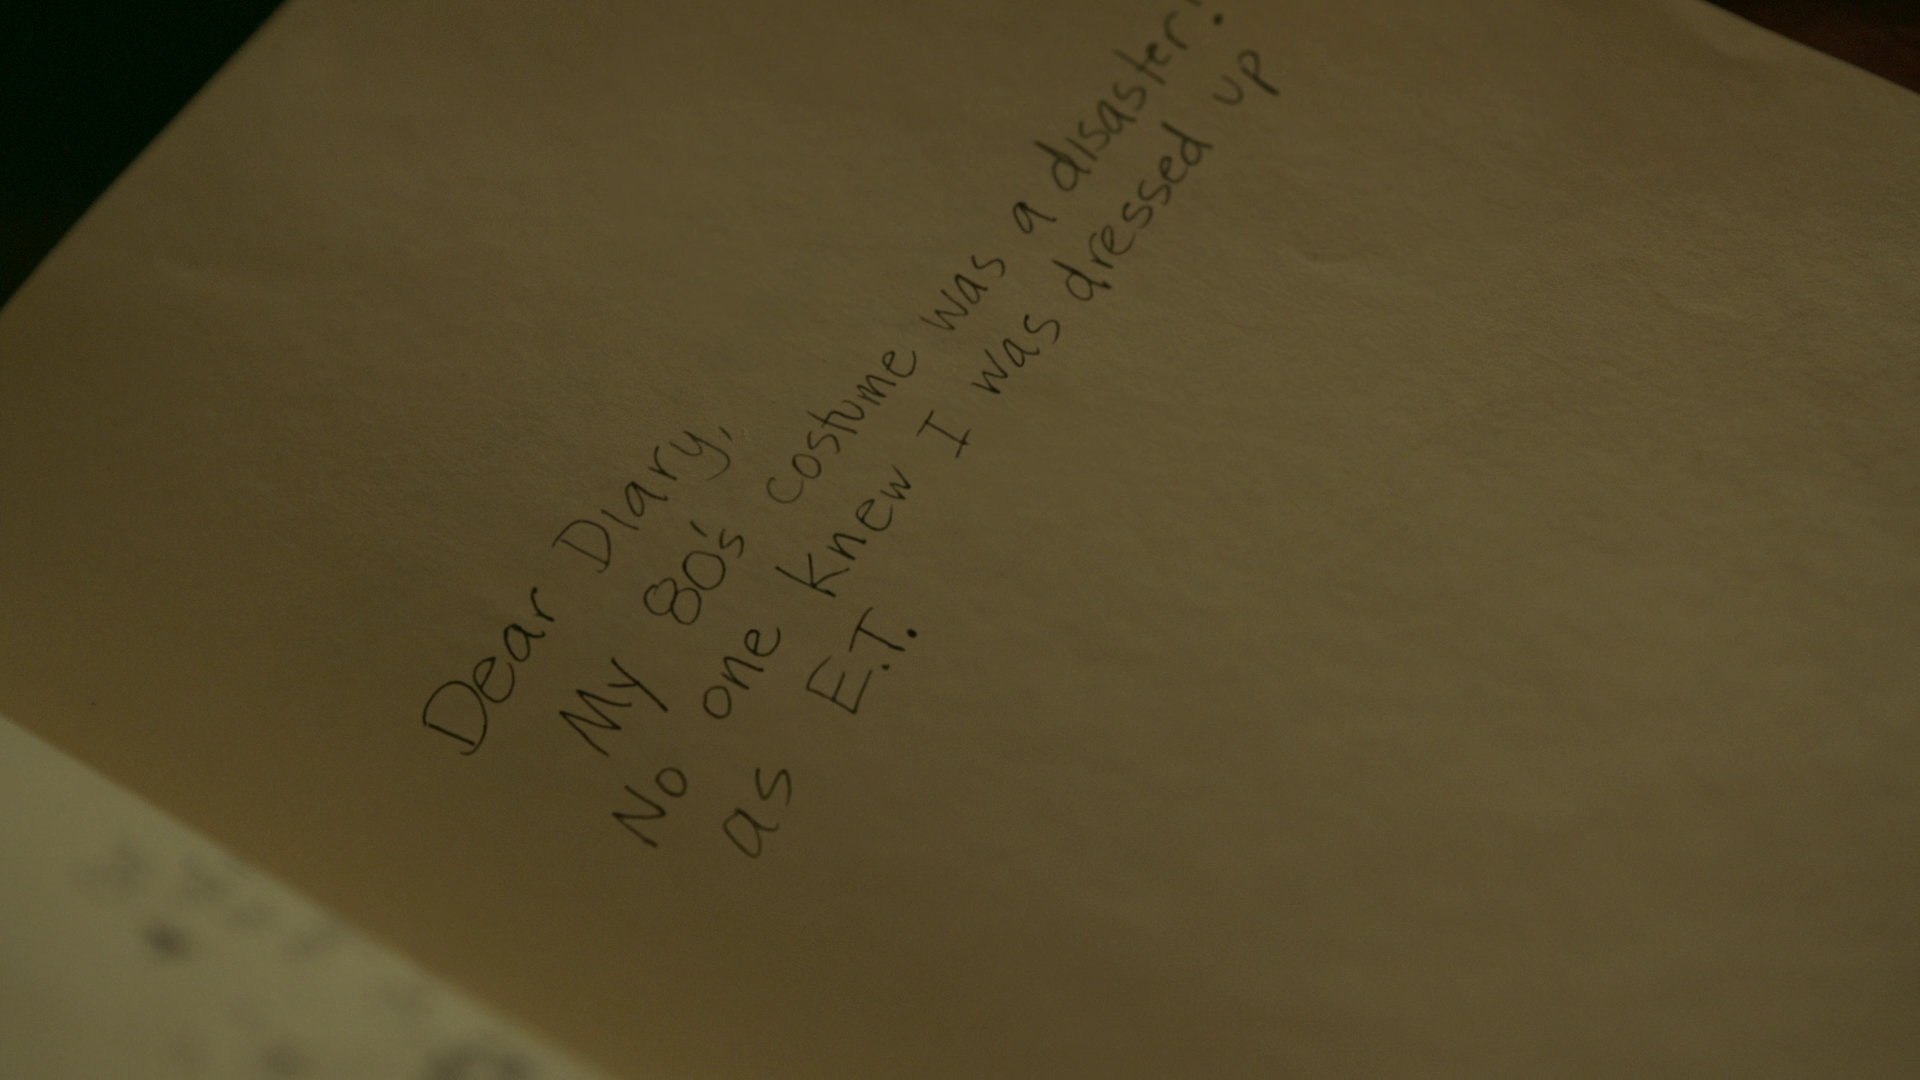 Dear Diary,
My 80's costume was a disaster!
No one knew I was dressed up
as E.T.